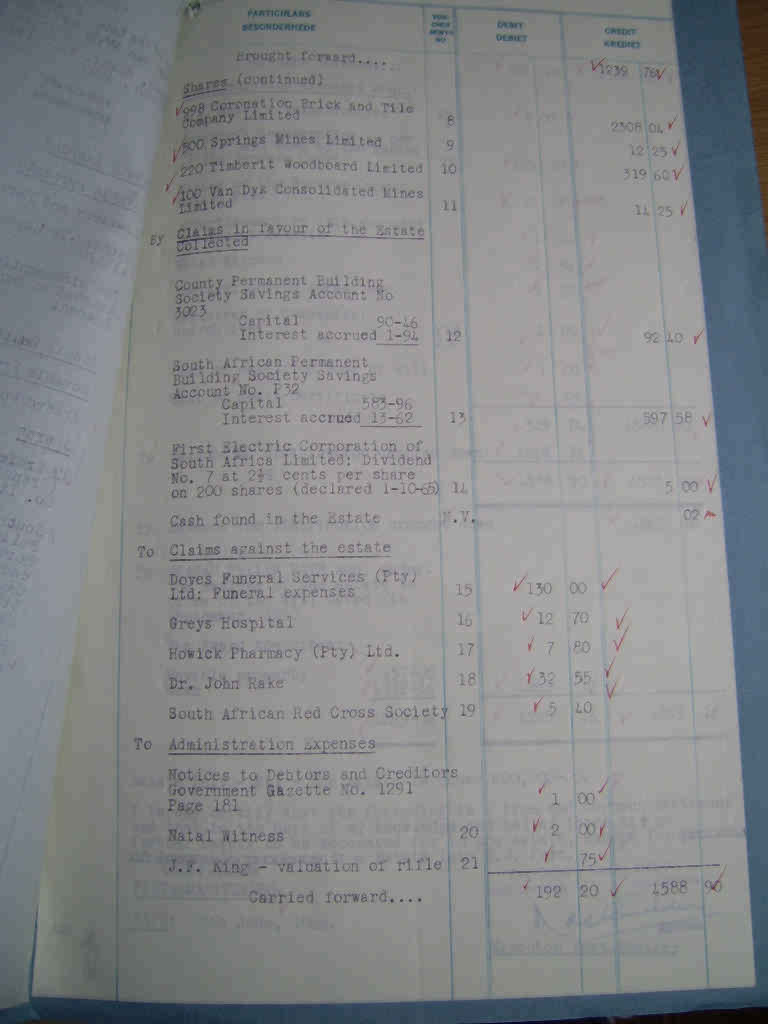 PARTICULARS
BESONDERHEDE
DEBIT
DEBIET
CREDIT
KREDIET
Brought forward.... 1239 76
Shares (continued)
998 Coronation Brick and Tile
Company Limited 8 2308 04
500 Springs Mines Limited 9 12 25
220 Timberit Woodboard Limited 10 319 60
100 Van Dyk Consolidated Mines
Limited 11 11 25
By Claims in favour of the Estate
Collected
County Permanent Building
Society Savings Account No
3023
Capital 90-46
Interest accrued 1-94 12 92 40
South African Permanent
Building Society Savings
Account No. P32
Capital 583-96
Interest accrued 13-62 13 597 58
First Electric Corporation of
South Africa Limited: Dividend
No. 7 at 2½ cents per share
on 200 shares (declared 1-10-65) 14 5 00
Cash found in the Estate N.V. 02
To Claims against the estate
Doves Funeral Services (Pty)
Ltd: Funeral expenses 15 130 00
Greys Hospital 16 12 70
Howick Pharmacy (Pty) Ltd. 17 7 80
Dr. John Rake 18 32 55
South African Red Cross Society 19 5 40
To Administration Expenses
Notices to Debtors and Creditors
Government Gazette No. 1291
Page 181 1 00
Natal Witness 20 2 00
J.F. King - valuation of rifle 21 75
Carried forward.... 192 20 4588 90